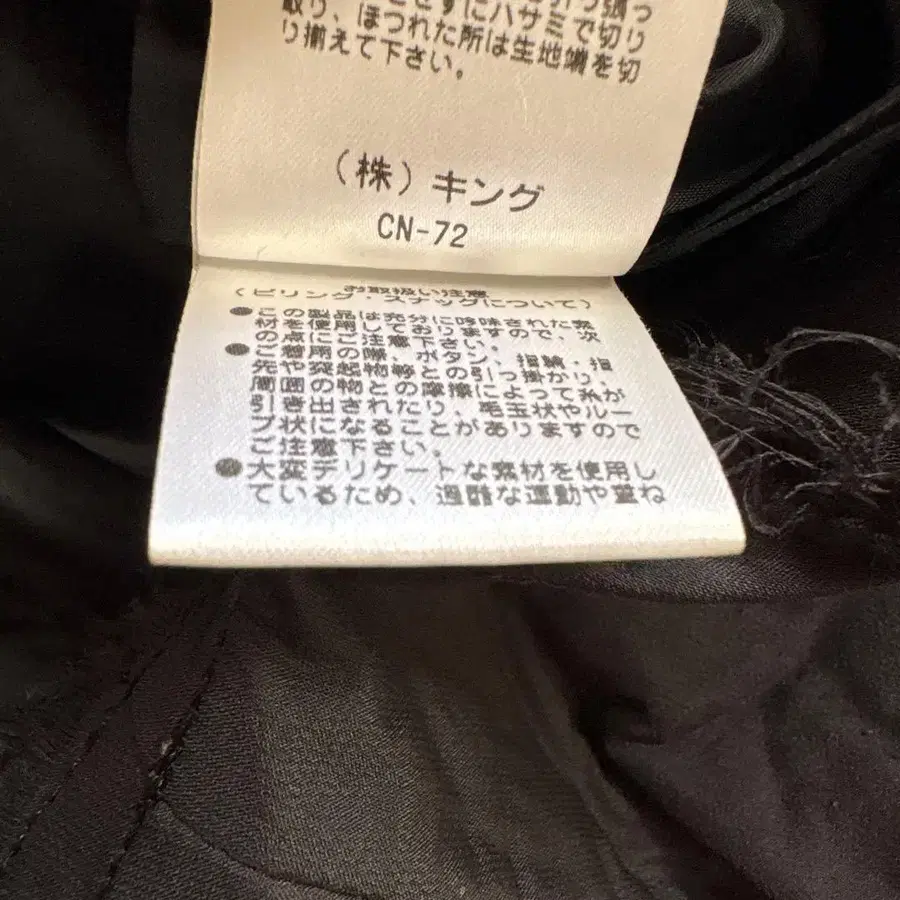 せずにハサミで切り
取り、ほつれた所は生地端を切
り揃えて下さい。
(株)キング
CN-72
お取扱い注意
(ピリング・スナッグについて)
●この製品は充分に吟味された素
材を使用しておりますので、次
の点にご注意下さい。
●ご着用の際、ボタン、指輪、指
先や突起物等との引っ掛かり、
周囲の物との摩擦によって糸が
引き出されたり、毛玉状やルー
プ状になることがありますので
ご注意下さい。
●大変デリケートな素材を使用し
ているため、過酷な運動や重ね